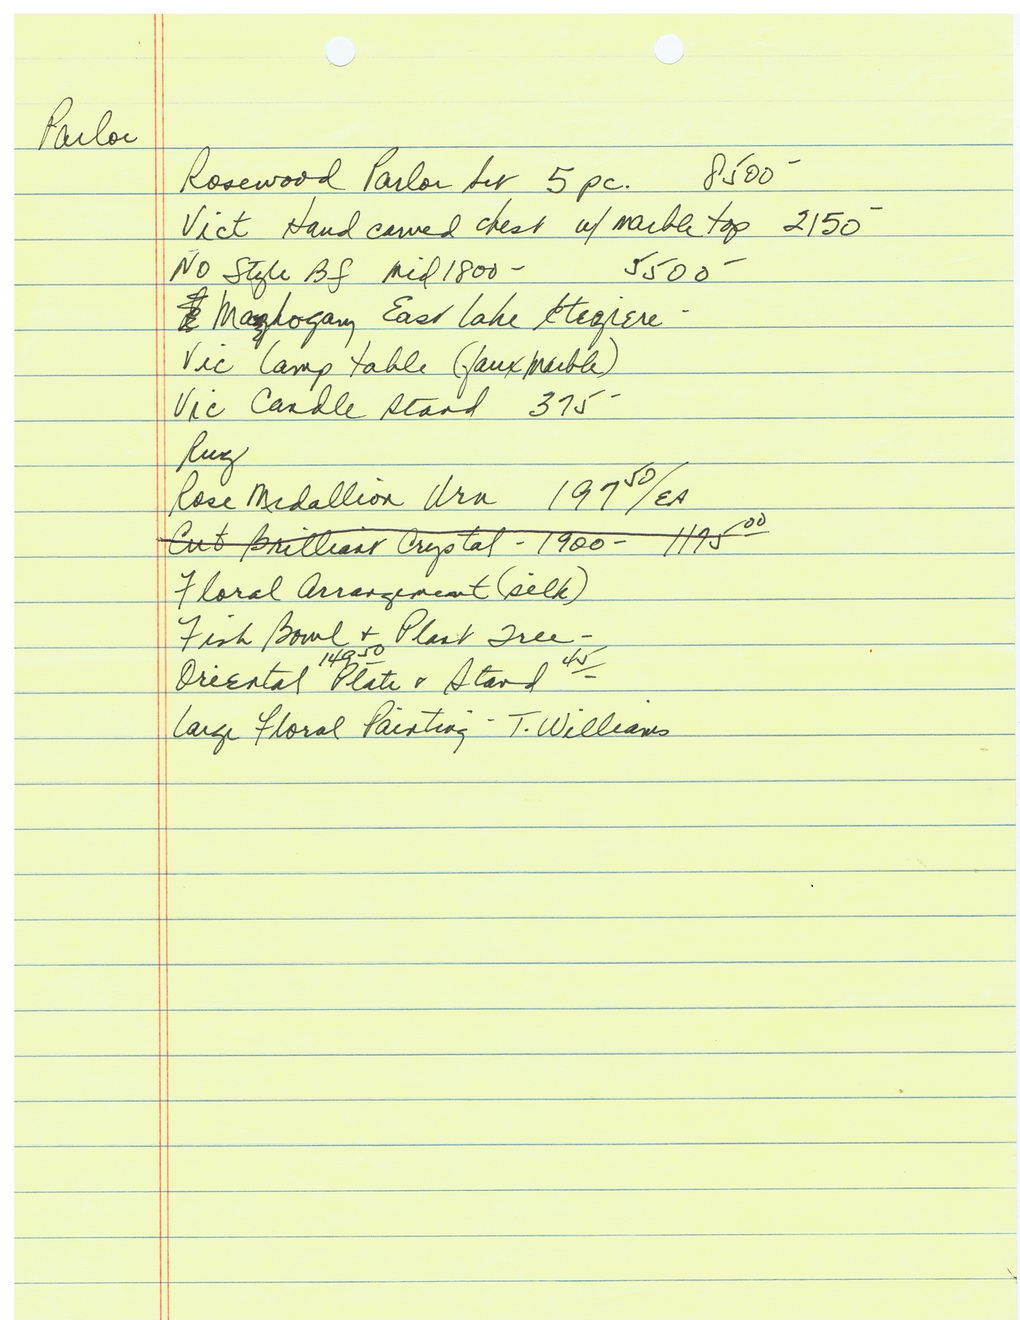 Parlor
Rosewood Parlor Set 5 pc. 8500-
Vict Hand carved chest w/ marble top 2150-
NO Style BF mid 1800- 5500-
Mahogany East Lake Etegiere -
Vic Lamp table (faux marble)
Vic Candle Stand 375-
Rug
Rose Medallion Urn 197 50/EA
Cut Brilliant Crystal - 1900- 1195 00
Floral Arrangement (silk)
Fish Bowl + Plant Tree -
Oriental Plate 149 50 + Stand 45-
Large Floral Painting - T. Williams